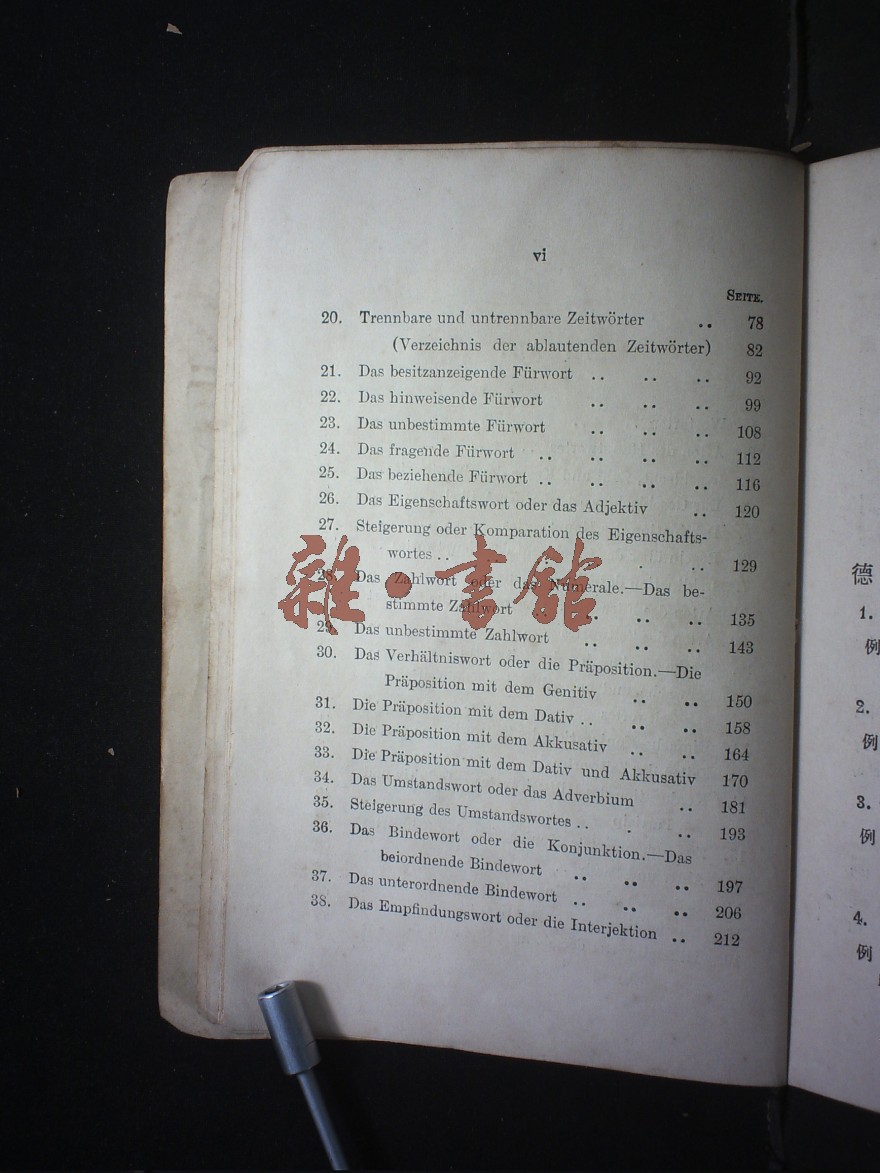 vi
SEITE.
20. Trennbare und untrennbare Zeitwörter .. 78
(Verzeichnis der ablautenden Zeitwörter) 82
21. Das besitzanzeigende Fürwort .. .. .. 92
22. Das hinweisende Fürwort .. .. .. 99
23. Das unbestimmte Fürwort .. .. .. 108
24. Das fragende Fürwort .. .. .. .. 112
25. Das beziehende Fürwort .. .. .. .. 116
26. Das Eigenschaftswort oder das Adjektiv .. 120
27. Steigerung oder Komparation des Eigenschafts-
wortes .. . .. 129
28. Das Zahlwort oder das Numerale.—Das be-
stimmte Zahlwort .. .. .. .. 135
29. Das unbestimmte Zahlwort .. .. .. 143
30. Das Verhältniswort oder die Präposition.—Die
Präposition mit dem Genitiv .. .. 150
31. Die Präposition mit dem Dativ .. .. .. 158
32. Die Präposition mit dem Akkusativ .. .. 164
33. Die Präposition mit dem Dativ und Akkusativ 170
34. Das Umstandswort oder das Adverbium .. 181
35. Steigerung des Umstandswortes .. . .. 193
36. Das Bindewort oder die Konjunktion.—Das
beiordnende Bindewort .. .. .. 197
37. Das unterordnende Bindewort .. .. .. 206
38. Das Empfindungswort oder die Interjektion .. 212
雜·書館
德
1.
例
2.
例
3.
例
4.
例